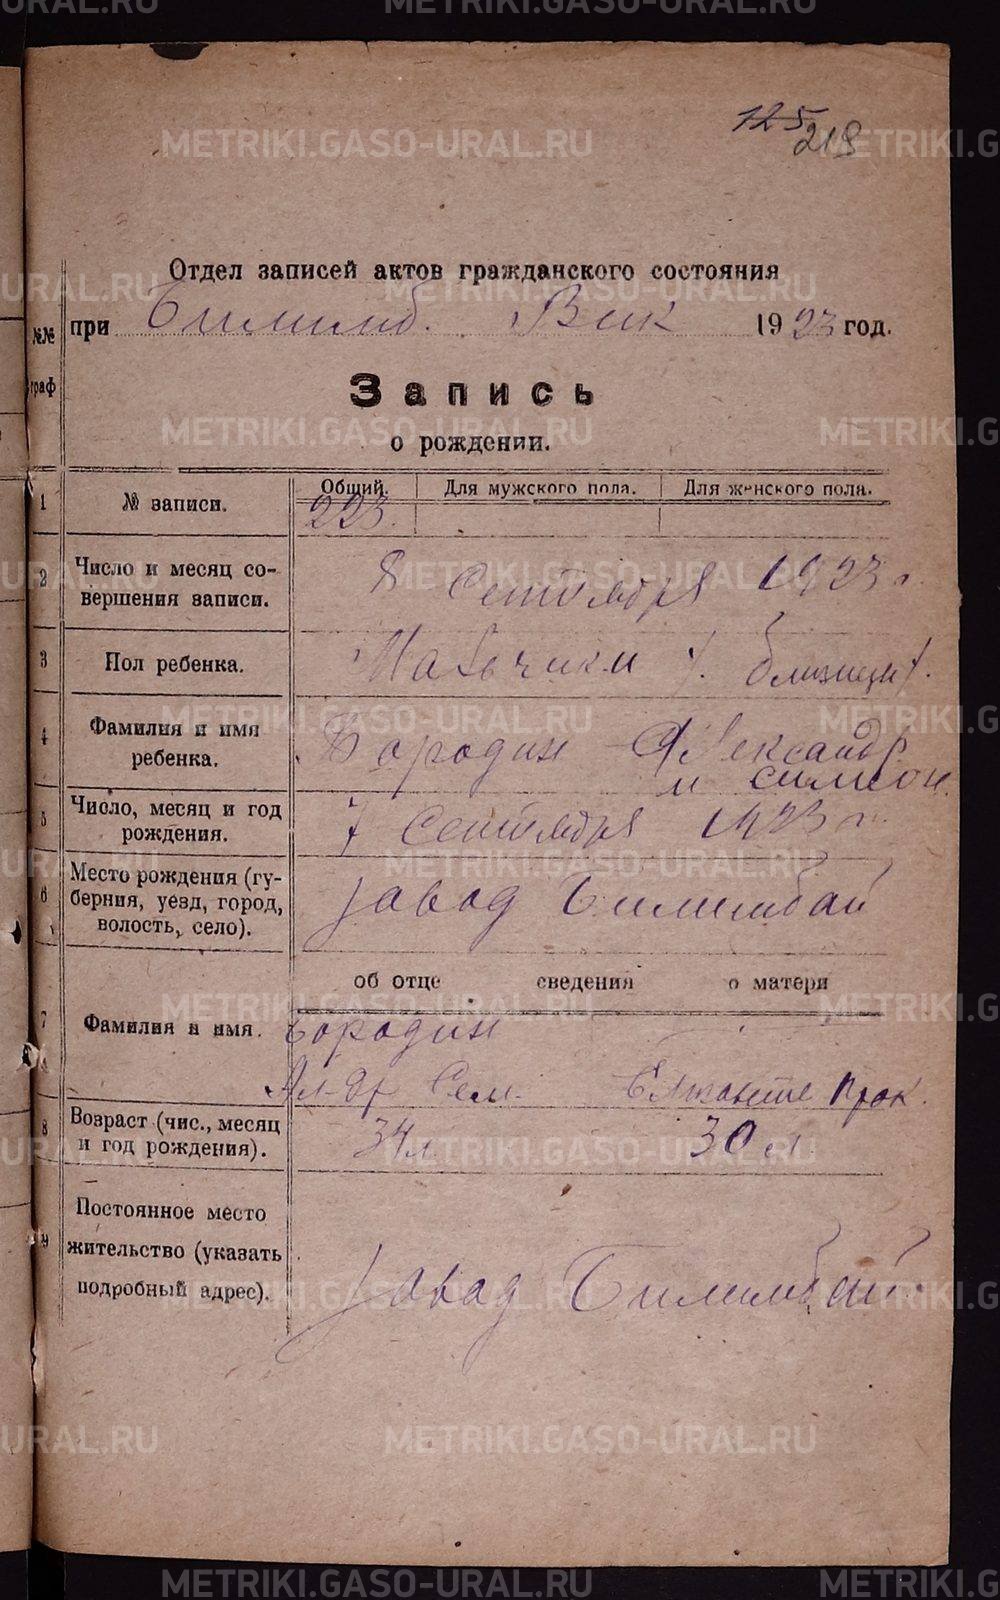 125
219
Отдел записей актов гражданского состояния
при Билимб. Вик 1923 год.
№№ граф
Запись
о рождении.
Общий. Для мужского пола. Для женского пола.
1 № записи. 223.
2 Число и месяц совершения записи. 8 Сентября 1923 г.
3 Пол ребенка. Мальчики близнецы
4 Фамилия и имя ребенка. Бородин Александр
и Симион.
5 Число, месяц и год рождения. 7 Сентября 1923 г.
6 Место рождения (губерния, уезд, город, волость, село). завод Билимбай
об отце сведения о матери
7 Фамилия и имя. Бородин
Ал-др Сем. Прок.
8 Возраст (чис., месяц и год рождения). 34 л 30 л.
9 Постоянное место жительство (указать подробный адрес). завод Билимбай.
METRIKI.GASO-URAL.RU